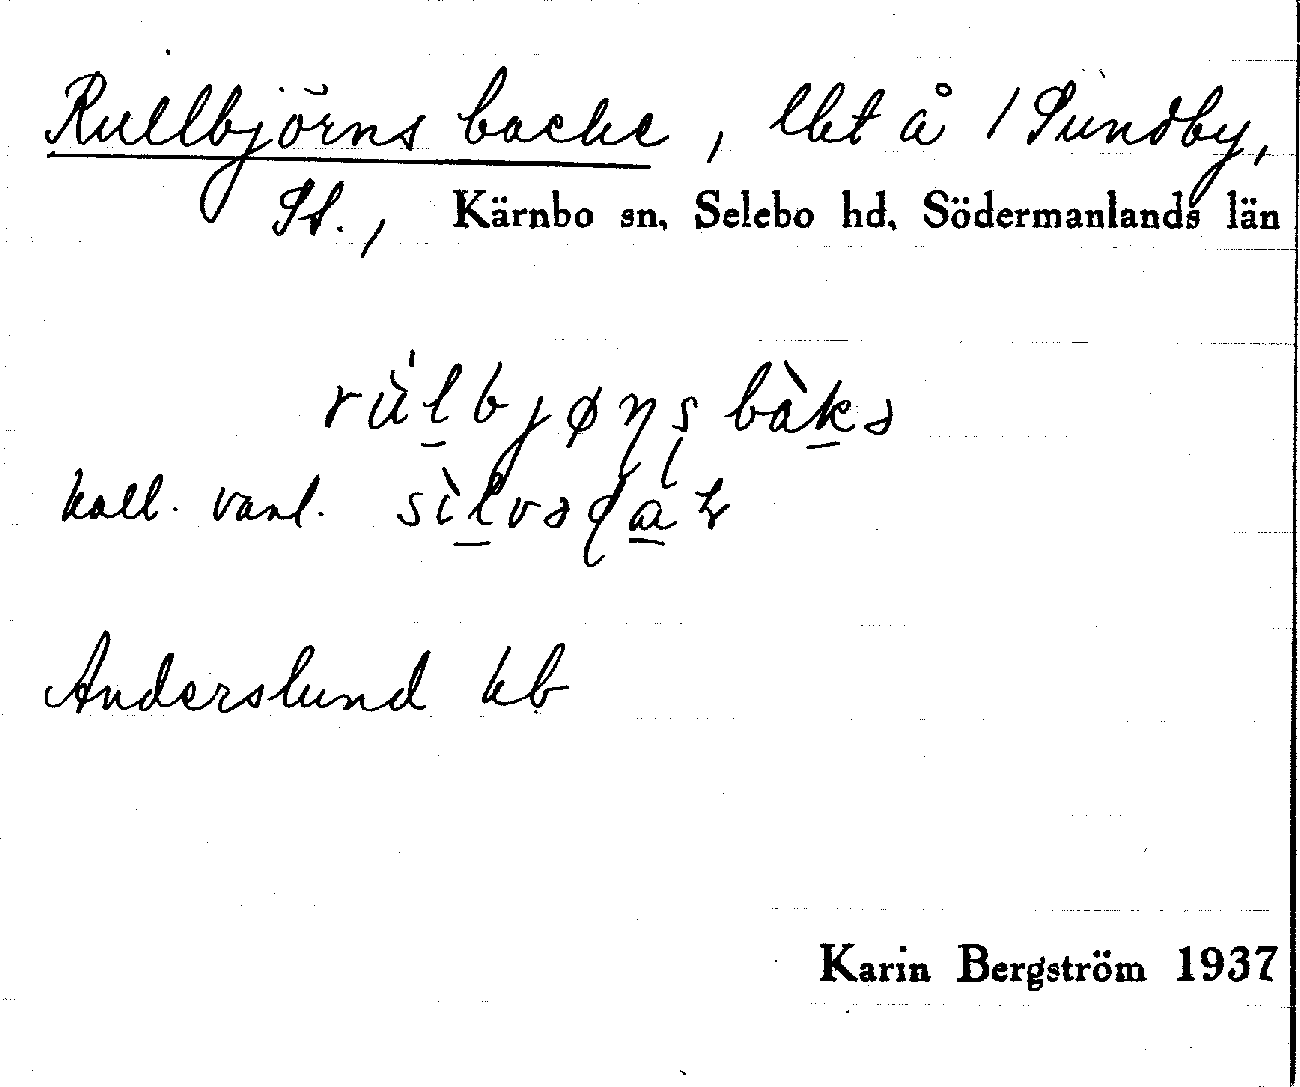 Rullbjörns backe, lht å 1 Sundby,
St., Kärnbo sn. Selebo hd. Södermanlands län
rùlbjøɳʂbàkə
kall. vanl. sìlvəɖa
Anderslund kb
Karin Bergström 1937